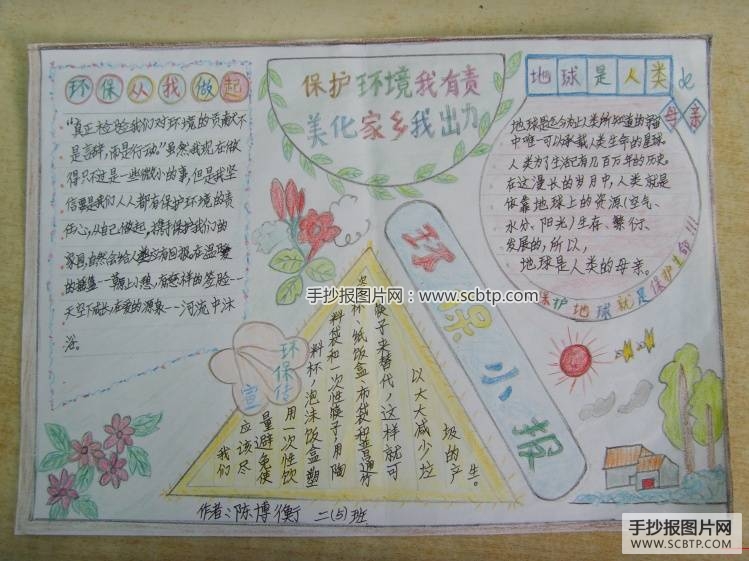 环保从我做起
"真正检验我们对环境的贡献不
是言辞，而是行动"虽然我现在做
得只不过是一些微小的事，但是我坚
信要是我们人人都有保护环境的责
任心，从自己做起，携手保护我们的
家园，自然会给人类应有回报。在温暖
的
一草原上小憩，
天空下成长，在爱的源泉--河流中沐
浴。
保护环境我有责
美化家乡我出力
地球是人类的
母亲
地球是迄今为止人类所知道的宇宙
中唯一可以承载人类生命的星球。
人类为了生活已有几百万年的历史。
在这漫长的岁月中，人类就是
依靠地球上的资源（空气、
水分、阳光）生存、繁衍、
发展的，所以，
地球是人类的母亲。
保护地球就是保护生命!!!
环保小报
环保宣传
我们
应该尽
量避免使
用一次性饮
料杯，泡沫饭盒塑
料袋和一次性筷子，用陶
瓷杯、纸饭盒、布袋和普通竹
筷子来替代，这样就可
以大大减少垃
圾的产生。
作者：陈博衡 二(5)班
手抄报图片网：www.scbtp.com
手抄报图片网
SCBTP.COM